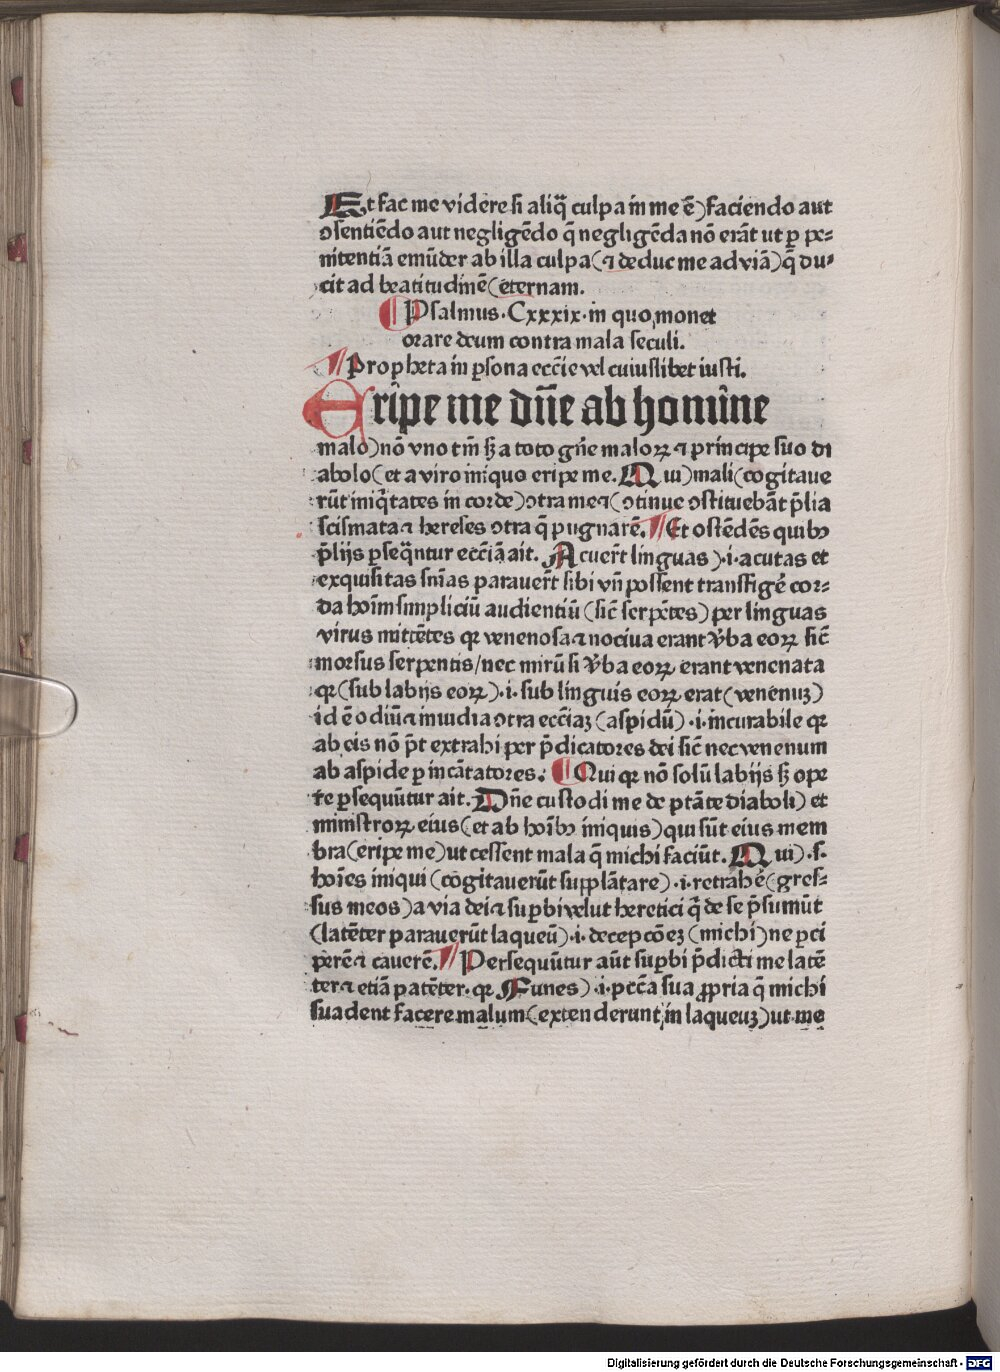 Et fac me videre si aliq̃ culpa in me ē) faciendo aut
ꝯsentiēdo aut negligēdo q̄ negligēda nō erāt ut ꝑ pe⸗
nitentiā emūder ab illa culpa (⁊ deduc me ad viā) q̄ du⸗
cit ad beatitudinē (eternam.
¶ Psalmus. Cxxxix. in quo monet
orare deum contra mala seculi.
¶ Propheta in ꝑsona eccĩe vel cuiuslibet iusti.
Eripe me dñe ab homine
malo) nō vno tm̄ sꝫ a toto gñe maloꝝ ⁊ principe suo di
abolo (et a viro iniquo eripe me. Qui) mali (cogitaue
rūt iniq̃tates in corde) ꝯtra me ⁊ (ꝯtinue ꝯstituebāt p̄lia
scismata ⁊ hereses ꝯtra q̄ pugnarē. ¶ Et ostēdēs quibꝫ
p̄lijs ꝑseq̄ntur eccĩiā ait. Acuer̄t linguas) .i. acutas et
exquisitas sn̄ias parauer̄t sibi vñ possent transfigē cor⸗
da hoīm simpliciū audientiū (sic̄ serpētes) per linguas
virus mittētes qꝛ venenosa ⁊ nociua erant v̄ba eoꝝ sic̄
morsus serpentis / nec mirū si v̄ba eoꝝ erant venenata
qꝛ (sub labijs eoꝝ) .i. sub linguis eoꝝ erat (venenuꝫ)
id ē odiū ⁊ inuidia ꝯtra eccĩiaꝫ (aspidū) .i. incurabile qꝛ
ab eis nō p̄t extrahi per p̄dicatores dei sic̄ nec venenum
ab aspide ꝑ incātatores. ¶ Qui qꝛ nō solū labijs sꝫ ope
re ꝑsequūtur ait. Dñe custodi me de ptāte diaboli) et
ministroꝝ eius (et ab hoībꝫ iniquis) qui sūt eius mem
bra (eripe me) ut cessent mala q̄ michi faciūt. Qui) .s.
hoīes iniqui (cogitauerūt supplātare) .i. retrahē (gres⸗
sus meos) a via dei ⁊ suꝑbi velut heretici q̄ de se p̄sumūt
(latēter parauerūt laqueū) .i. decepcōeꝫ (michi) ne ꝑci
perē ⁊ cauerē. ¶ Persequūtur aūt suꝑbi p̄dicti me latē
ter ⁊ etiā patēter. qꝛ Funes) .i. pctā sua ꝓpria q̄ michi
suadent facere malum (extenderunt in laqueuꝫ) ut me
Digitalisierung gefördert durch die Deutsche Forschungsgemeinschaft - DFG